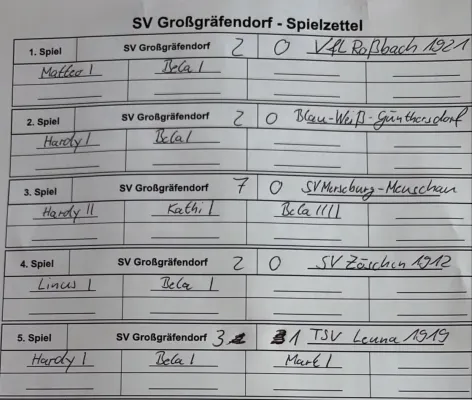 SV Großgräfendorf - Spielzettel
1. Spiel SV Großgräfendorf 2 0 VfL Roßbach 1921
Matteo I Bela I
2. Spiel SV Großgräfendorf 2 0 Blau-Weiß-Günthersdorf
Hardy I Bela I
3. Spiel SV Großgräfendorf 7 0 SV Merseburg-Meuschau
Hardy II Kathi I Bela IIII
4. Spiel SV Großgräfendorf 2 0 SV Zöschen 1912
Linus I Bela I
5. Spiel SV Großgräfendorf 3 1 TSV Leuna 1919
Hardy I Bela I Mark I